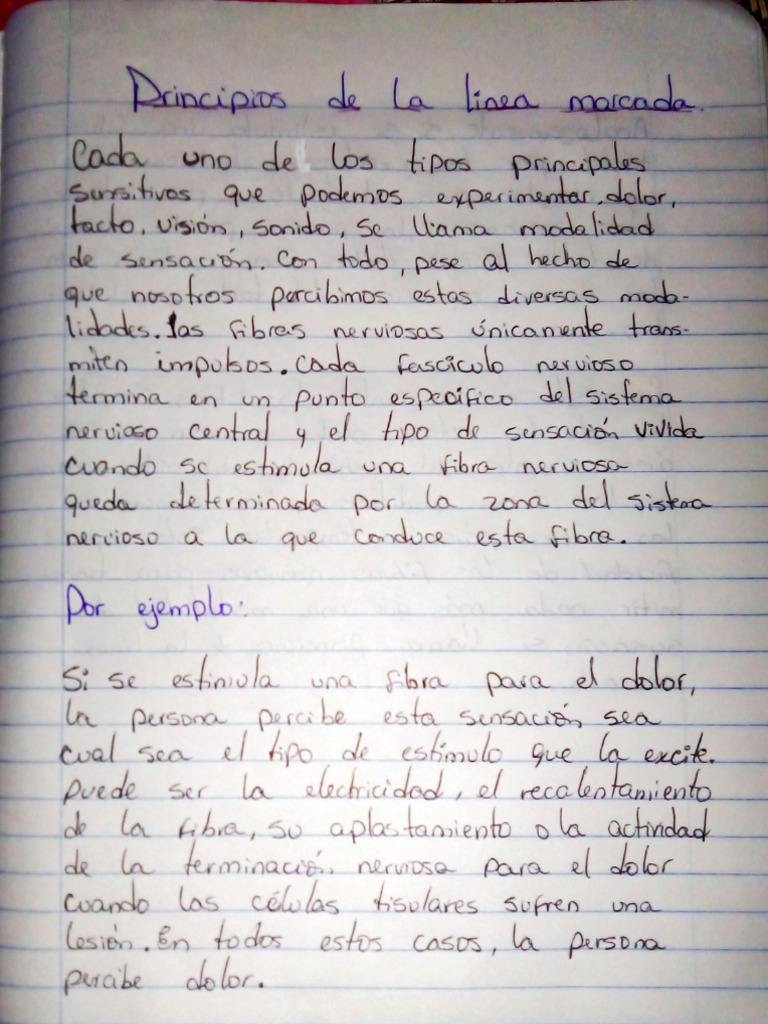 Principios de la linea marcada.
Cada uno de los tipos principales
sensitivos que podemos experimentar, dolor,
tacto, visión, sonido, se llama modalidad
de sensación. Con todo, pese al hecho de
que nosotros percibimos estas diversas moda-
lidades. las fibras nerviosas únicamente trans-
miten impulsos. Cada fascículo nervioso
termina en un punto específico del sistema
nervioso central y el tipo de sensación vivida
cuando se estimula una fibra nerviosa
queda determinada por la zona del sistema
nervioso a la que conduce esta fibra.
Por ejemplo:
Si se estimula una fibra para el dolor,
la persona percibe esta sensación sea
cual sea el tipo de estímulo que la excite.
Puede ser la electricidad, el recalentamiento
de la fibra, su aplastamiento o la actividad
de la terminación nerviosa para el dolor
cuando las células tisulares sufren una
lesión. En todos estos casos, la persona
percibe dolor.